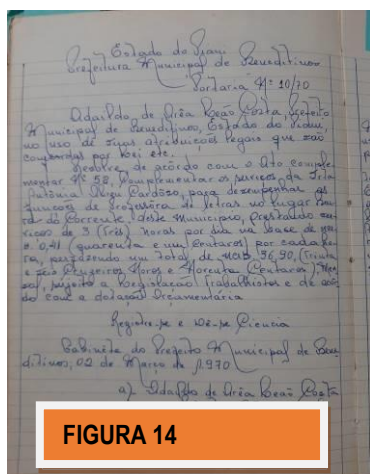 Estado do Piauí
Prefeitura Municipal de Beneditinos
Portaria Nº 10/70
Adaildo de Arêa Leão Costa, Prefeito
Municipal de Beneditinos, Estado do Piauí,
no uso de suas atribuições legais que são
conferidas por Lei etc.
Resolve, de acôrdo com o Ato comple-
mentar Nº 52, complementar os serviços, da Srta
Antônia Cardôso, para desempenhar as
funcoes de Professôra de letras no lugar
do Corrente, deste Municipio, prestando ser-
viços de 3 (Três) horas por dia na base de
0,41 (quarenta e um Centavos) por cada ho-
ra, perfazendo um total de 36,90, (Trinta
e seis Cruzeiros Novos e Noventa Centavos), Men
sal, sujeito a Legislação Trabalhista e de acôr
do com a dotação Orçamentária
Registre-se e Dê-se Ciencia
Gabinête do Prefeito Municipal de Bene-
ditinos, 02 de Março de 1.970
a) Adaildo de Arêa Leão Costa
FIGURA 14